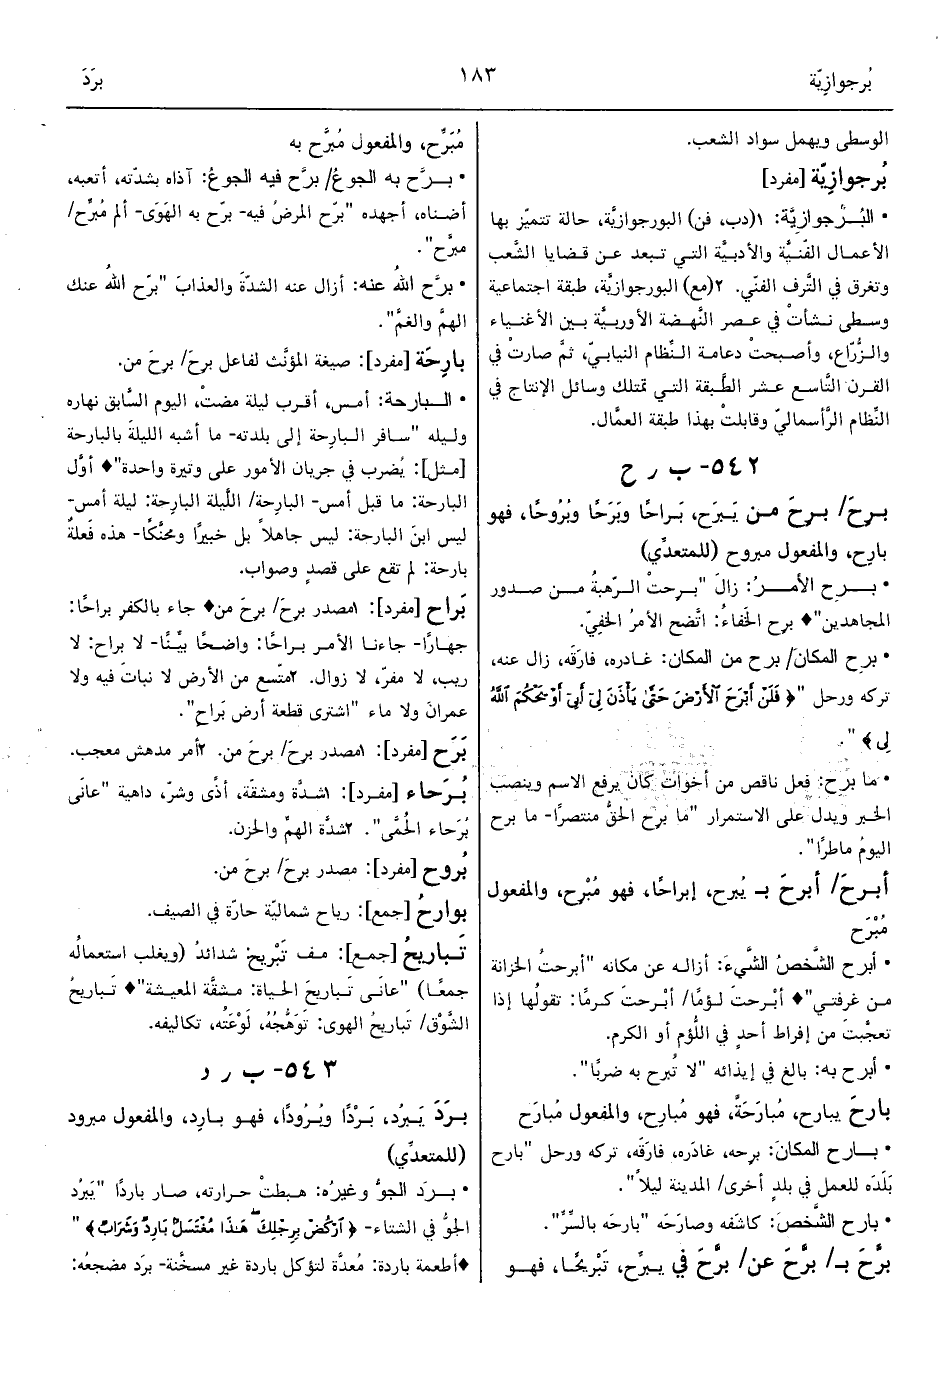 بُرجوازيّة
١٨٣
برَدَ
الوسطى ويهمل سواد الشعب.
بُرجوازيّة [مفرد]
• البُرْجوازيَّة: ١(دب، فن) البورجوازيَّة، حالة تتميّز بها
الأعمال الفنّيَّة والأدبيَّة التي تبعد عن قضايا الشَّعب
وتغرق في التَّرف الفنّي. ٢(مع) البورجوازيَّة، طبقة اجتماعية
وسطى نشأتْ في عصر النَّهضة الأوربيَّة بين الأغنياء
والزُّرّاع، وأصبحتْ دعامة النِّظام النيابيّ، ثمَّ صارتْ في
القرن التَّاسع عشر الطَّبقة التي تمتلك وسائل الإنتاج في
النِّظام الرَّأسماليّ وقابلتْ بهذا طبقة العمَّال.
٥٤٢- ب ر ح
برحَ/ برِحَ من يَبرَح، بَراحًا وبَرَحًا وبُرُوحًا، فهو
بارِح، والمفعول مبروح (للمتعدِّي)
• برح الأمرُ: زالَ "برحتْ الرّهبةُ من صدور
المجاهدين"♦ برح الخفاءُ: اتَّضح الأمرُ الخفيّ.
• برح المكانَ/ برح من المكان: غادره، فارَقَه، زال عنه،
تركه ورحل "﴿ فَلَنْ أَبْرَحَ الْأَرْضَ حَتَّى يَأْذَنَ لِي أَبِي أَوْ يَحْكُمَ اللَّهُ
لِي ﴾".
• ما برَح: فعل ناقص من أخوات كان يرفع الاسم وينصب
الخبر ويدل على الاستمرار "ما برح الحقُّ منتصرًا- ما برح
اليومُ ماطرًا".
أبرحَ/ أبرحَ بـ يُبرح، إبراحًا، فهو مُبْرِح، والمفعول
مُبْرَح
• أبرح الشَّخصُ الشَّيءَ: أزاله عن مكانه "أبرحتُ الخزانة
من غرفتي"♦ أبْرحتَ لؤمًا/ أبْرحتَ كرمًا: تقولُها إذا
تعجّبتَ من إفراط أحدٍ في اللُّؤم أو الكرم.
• أبرح به: بالغ في إيذائه "لا تُبرح به ضربًا".
بارحَ يبارح، مُبارَحَةً، فهو مُبارِح، والمفعول مُبارَح
• بارح المكانَ: برحه، غادَره، فارَقَه، تركه ورحل "بارح
بَلَدَه للعمل في بلدٍ أخرى/ المدينة ليلاً".
• بارح الشَّخصَ: كاشفه وصارَحَه "بارحَه بالسِّرِّ".
برَّحَ بـ/ برَّحَ عن/ برَّحَ في يبرِّح، تَبْريحًا، فهو
مُبَرِّح، والمفعول مُبرَّح به
• برَّح به الجوعُ/ برَّح فيه الجوعُ: آذاه بشدّته، أتعبه،
أضناه، أجهده "برّح المرضُ فيه- برّح به الهَوَى- ألم مُبرِّح/
مبرَّح".
• برَّح اللهُ عنه: أزال عنه الشدّةَ والعذابَ "برّح اللهُ عنك
الهمَّ والغمَّ".
بارِحَة [مفرد]: صيغة المؤنَّث لفاعل برحَ/ برحَ من.
• البارحة: أمس، أقرب ليلة مضتْ، اليوم السَّابق نهاره
وليله "سافر البارحة إلى بلدته- ما أشبه الليلةَ بالبارحة
[مثل]: يُضرب في جريان الأمور على وتيرة واحدة"♦ أوَّل
البارحة: ما قبل أمس- البارحة/ اللَّيلة البارحة: ليلة أمس-
ليس ابنَ البارحة: ليس جاهلاً بل خبيرًا ومحنَّكًا- هذه فَعلةٌ
بارحة: لم تقع على قصدٍ وصواب.
بَراح [مفرد]: ١مصدر برحَ/ برحَ من♦ جاء بالكفر براحًا:
جهارًا- جاءنا الأمر براحًا: واضحًا بيِّنًا- لا براح: لا
ريب، لا مفرّ، لا زوال. ٢متّسع من الأرض لا نباتَ فيه ولا
عمرانَ ولا ماء "اشترى قطعة أرض بَراح".
بَرَح [مفرد]: ١مصدر برحَ/ برحَ من. ٢أمر مدهش معجب.
بُرَحاء [مفرد]: ١شدَّة ومشقّة، أذًى وشرّ، داهية "عانَى
بُرَحاء الحُمَّى". ٢شدَّة الهمّ والحزن.
بُروح [مفرد]: مصدر برحَ/ برحَ من.
بوارحُ [جمع]: رياح شمالية حارّة في الصيف.
تَباريحُ [جمع]: مف تَبْريح: شدائدُ (ويغلب استعمالُه
جمعًا) "عانَى تَباريحَ الحياة: مشقَّة المعيشة"♦ تَباريحُ
الشَّوْق/ تَباريحُ الهوى: تَوَهُّجُهُ، لَوْعَتُه، تكاليفه.
٥٤٣- ب ر د
برَدَ يَبرُد، بَرْدًا وبُرُودًا، فهو بارِد، والمفعول مبرود
(للمتعدِّي)
• برَد الجوُّ وغيرُه: هبطتْ حرارته، صار باردًا "يَبرُد
الجوُّ في الشتاء- ﴿ ارْكُضْ بِرِجْلِكَ هَذَا مُغْتَسَلٌ بَارِدٌ وَشَرَابٌ ﴾"
♦أطعمة باردة: مُعدَّة لتؤكل باردة غير مسخَّنة- برَد مضجعُه: